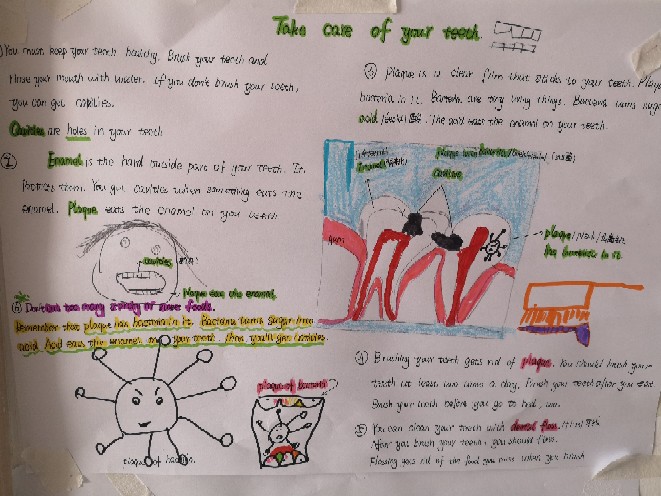 Take care of your teeth
You must keep your teeth healthy. Brush your teeth and
rinse your mouth with water. If you don't brush your teeth,
you can get cavities.
Cavities are holes in your teeth
② Enamel is the hard outside part of your teeth. It
Protects them. You get cavities when something eats the
enamel. Plaque eats the enamel on your teeth.
cavities
Plaque eats the enamel.
Don't eat too many
foods.
Remember that plaque has bacteria in it. Bacteria turns sugar into
acid. Acid eats the enamel on your teeth. Then you'll get cavities.
plaque of bacteria
plaque of bacteria
③ Plaque is a clear film that sticks to your teeth. Plaque
bacteria in it. Bacteria are tiny living things. Bacteria turns sugar
acid The acid eats the enamel on your teeth.
Enamel
cavities
Gum
plaque
has bacteria in it.
④ Brushing your teeth gets rid of plaque. You should brush your
teeth at least two times a day. Brush your teeth after you eat.
Brush your teeth before you go to bed, too.
⑤ You can clean your teeth with dental floss.
After you brush your teeth, you should floss.
Flossing gets rid of the food you miss when you brush